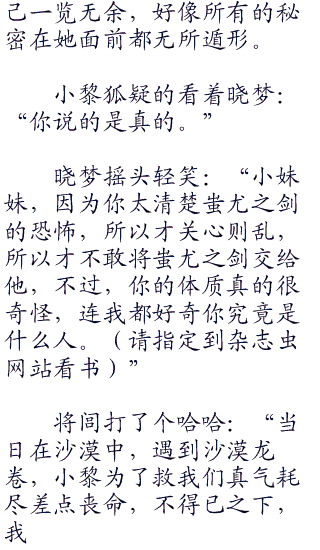 己一览无余，好像所有的秘
密在她面前都无所遁形。
小黎狐疑的看着晓梦：
“你说的是真的。”
晓梦摇头轻笑：“小妹
妹，因为你太清楚蚩尤之剑
的恐怖，所以才关心则乱，
所以才不敢将蚩尤之剑交给
他，不过，你的体质真的很
奇怪，连我都好奇你究竟是
什么人。（请指定到杂志虫
网站看书）”
将闾打了个哈哈：“当
日在沙漠中，遇到沙漠龙
卷，小黎为了救我们真气耗
尽差点丧命，不得已之下，
我